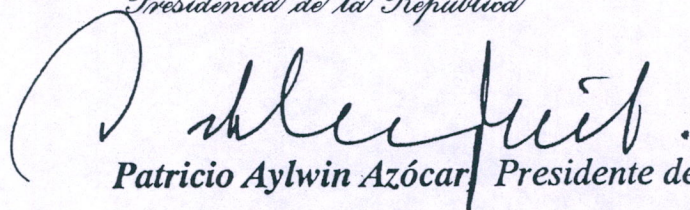 Presidencia de la República
Patricio Aylwin Azócar, Presidente de